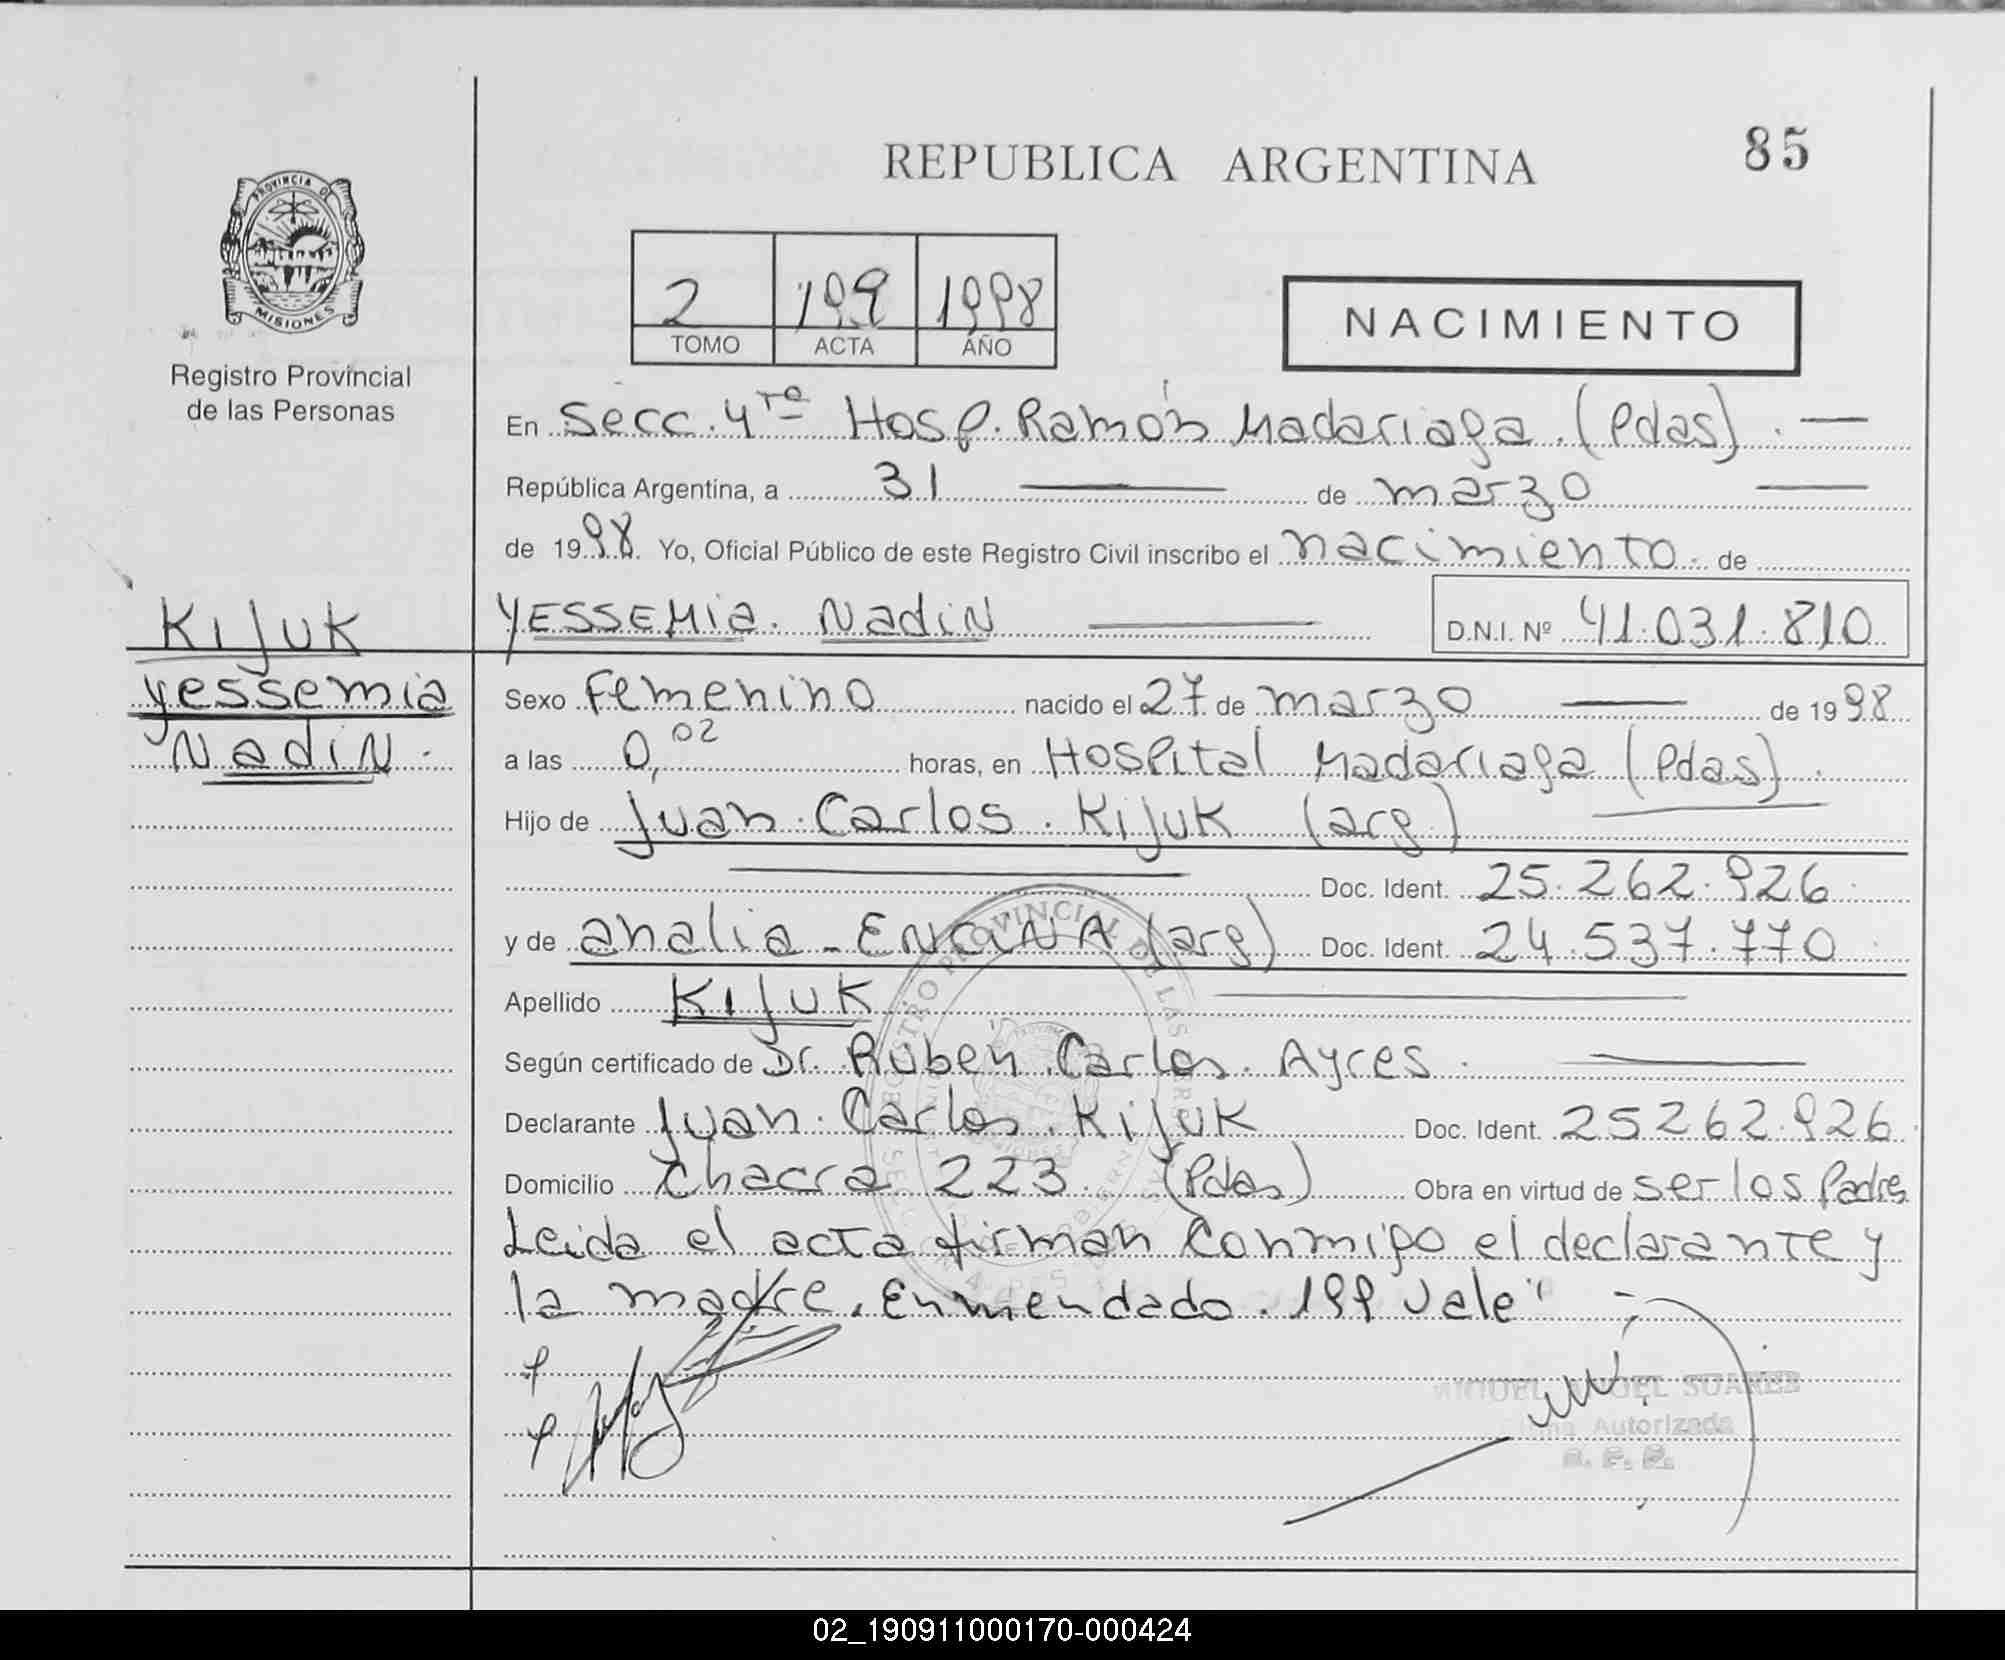 REPUBLICA ARGENTINA
85
PROVINCIA DE
MISIONES
Registro Provincial
de las Personas
2 199 1998
TOMO ACTA AÑO
NACIMIENTO
En Secc. 4ta Hosp. Ramón Madariaga. (Pdas).
República Argentina, a 31 de marzo
de 1998. Yo, Oficial Público de este Registro Civil inscribo el nacimiento. de
KIJUK
YESSEMia. NadiN D.N.I. Nº 41.031.810
yessemia
NadiN.
Sexo Femenino nacido el 27 de marzo de 1998
a las 0,02 horas, en Hospital Madariaga (Pdas).
Hijo de Juan. Carlos. KiJuK (arg)
Doc. Ident. 25.262.926
y de analia - ENCiNA (arg) Doc. Ident. 24.537.770
Apellido KIJUK
Según certificado de Dr. Rubén. Carlos. Ayres.
Declarante Juan. Carlos. KiJuK Doc. Ident. 25262.926
Domicilio chacra 223. (Pdas) Obra en virtud de ser los Padres
Leida el acta firman conmigo el declarante y
la madre. Enmendado. 199 Vale"
MIGUEL ANGEL SUARES
Firma Autorizada
R. P. P.
02_190911000170-000424